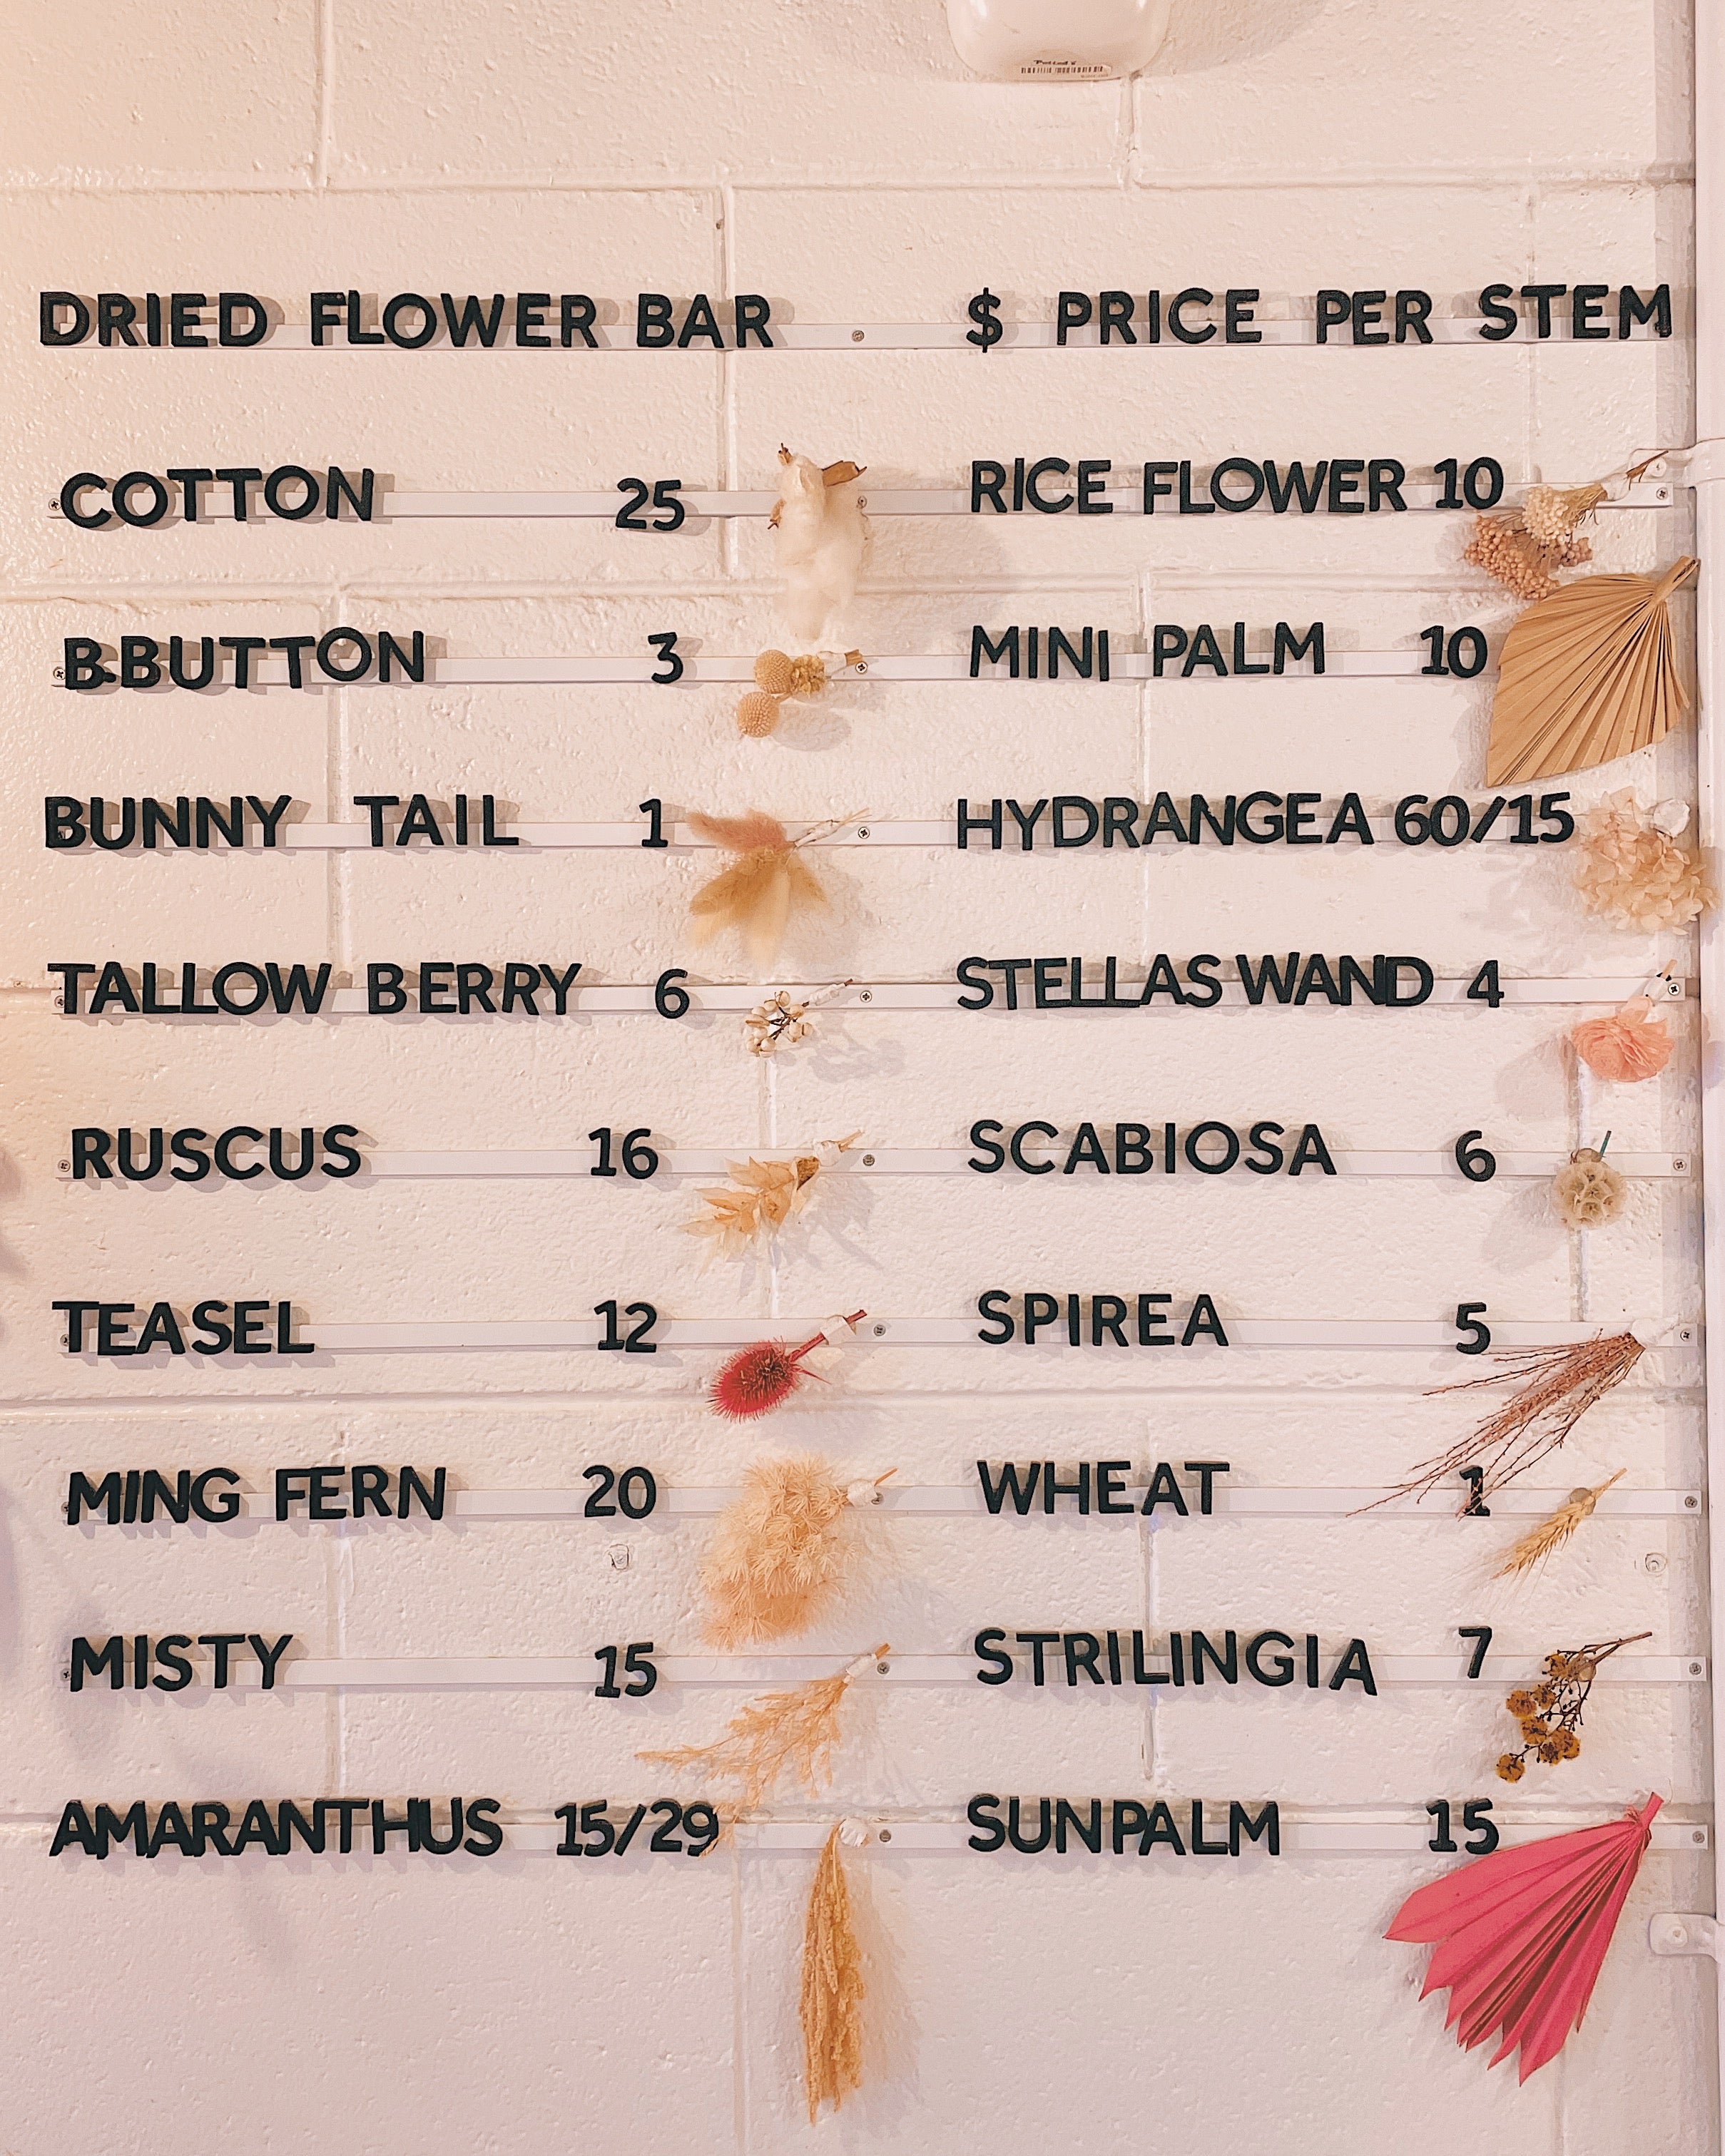 DRIED FLOWER BAR
COTTON 25
B.BUTTON 3
BUNNY TAIL 1
TALLOW BERRY 6
RUSCUS 16
TEASEL 12
MING FERN 20
MISTY 15
AMARANTHUS 15/29
$ PRICE PER STEM
RICE FLOWER 10
MINI PALM 10
HYDRANGEA 60/15
STELLAS WAND 4
SCABIOSA 6
SPIREA 5
WHEAT 1
STRILINGIA 7
SUNPALM 15